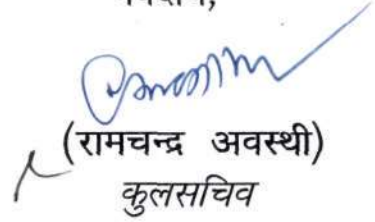 (रामचन्द्र अवस्थी)
कुलसचिव